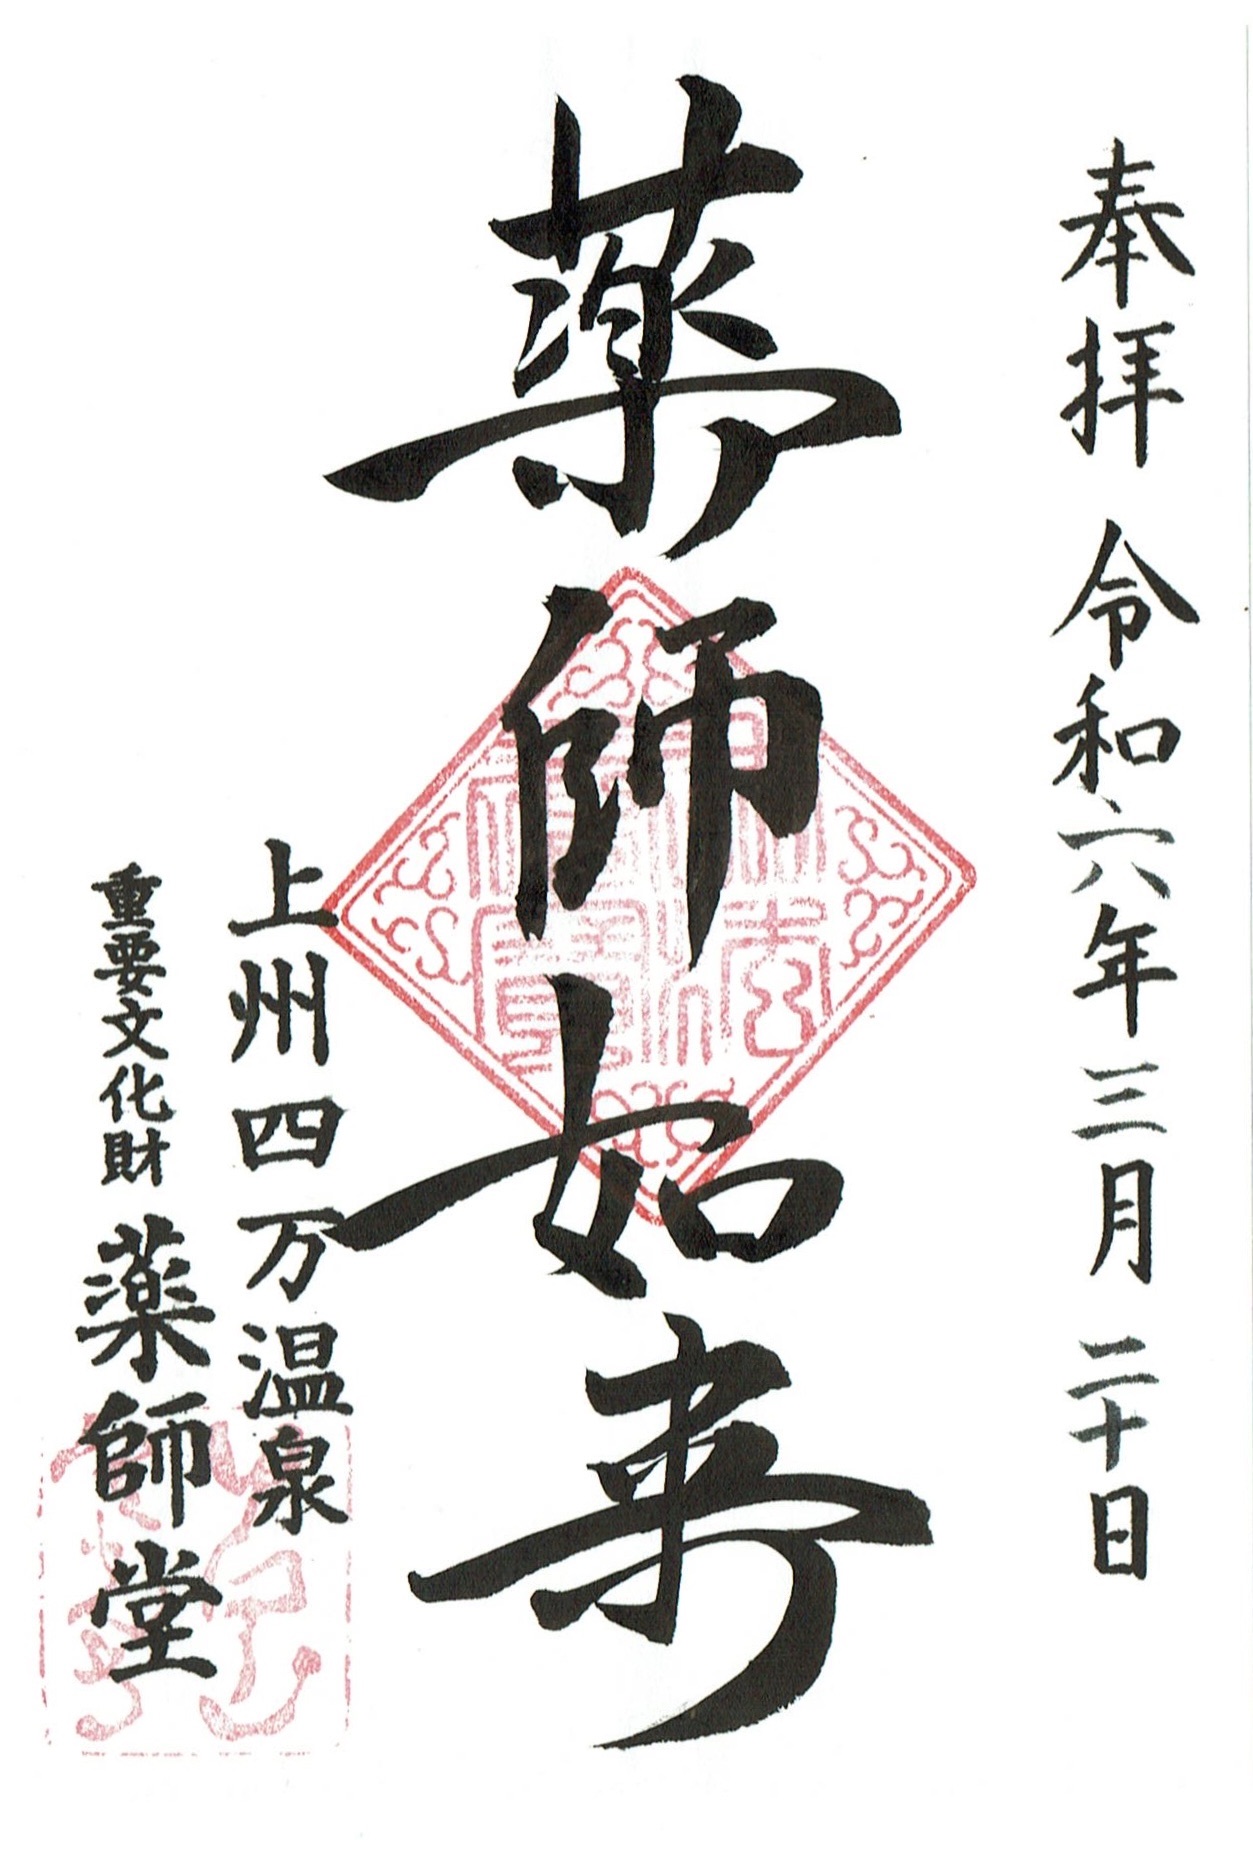 奉拝 令和六年三月二十日
薬師如来
上州四万温泉
重要文化財 薬師堂